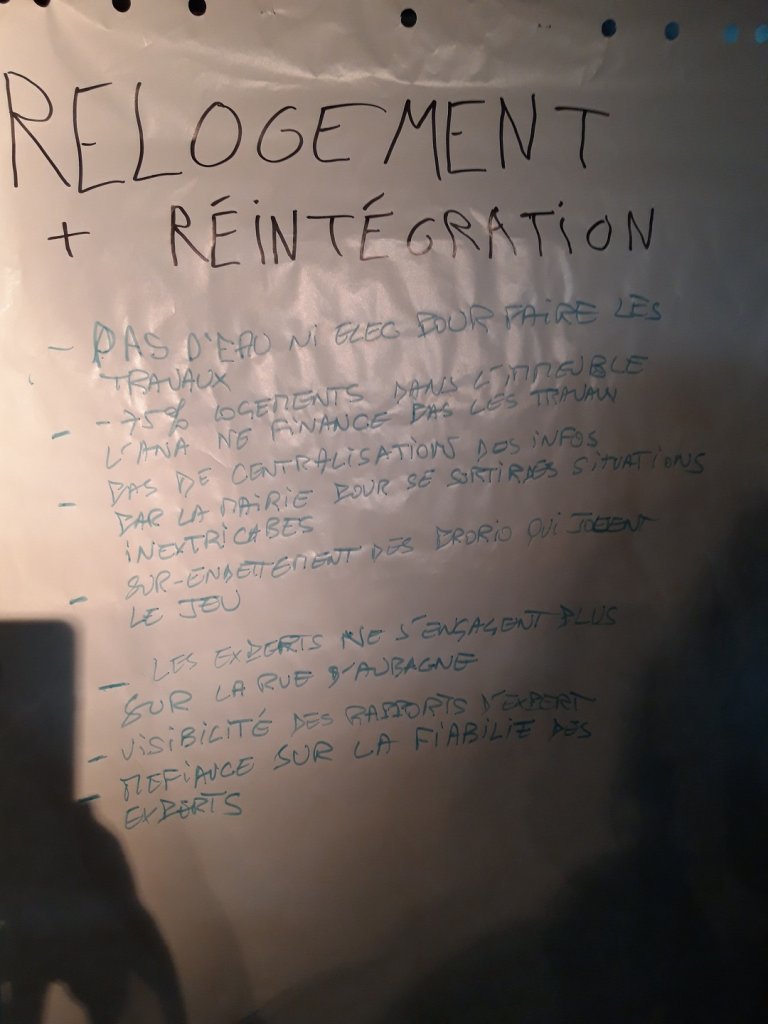 RELOGEMENT
+ RÉINTÉGRATION
- PAS D'EAU NI ELEC POUR FAIRE LES
TRAVAUX
- -75% LOGEMENTS DANS L'IMMEUBLE
L'ANA NE FINANCE PAS LES TRAVAUX
- PAS DE CENTRALISATION DES INFOS
PAR LA MAIRIE POUR SE SORTIR DES SITUATIONS
INEXTRICABES
- SUR-ENDETTEMENT DES PROPRIO QUI JOUENT
LE JEU
- LES EXPERTS NE S'ENGAGENT PLUS
SUR LA RUE D'AUBAGNE
- VISIBILITÉ DES RAPPORTS D'EXPERT
- MEFIANCE SUR LA FIABILIE DES
EXPERTS